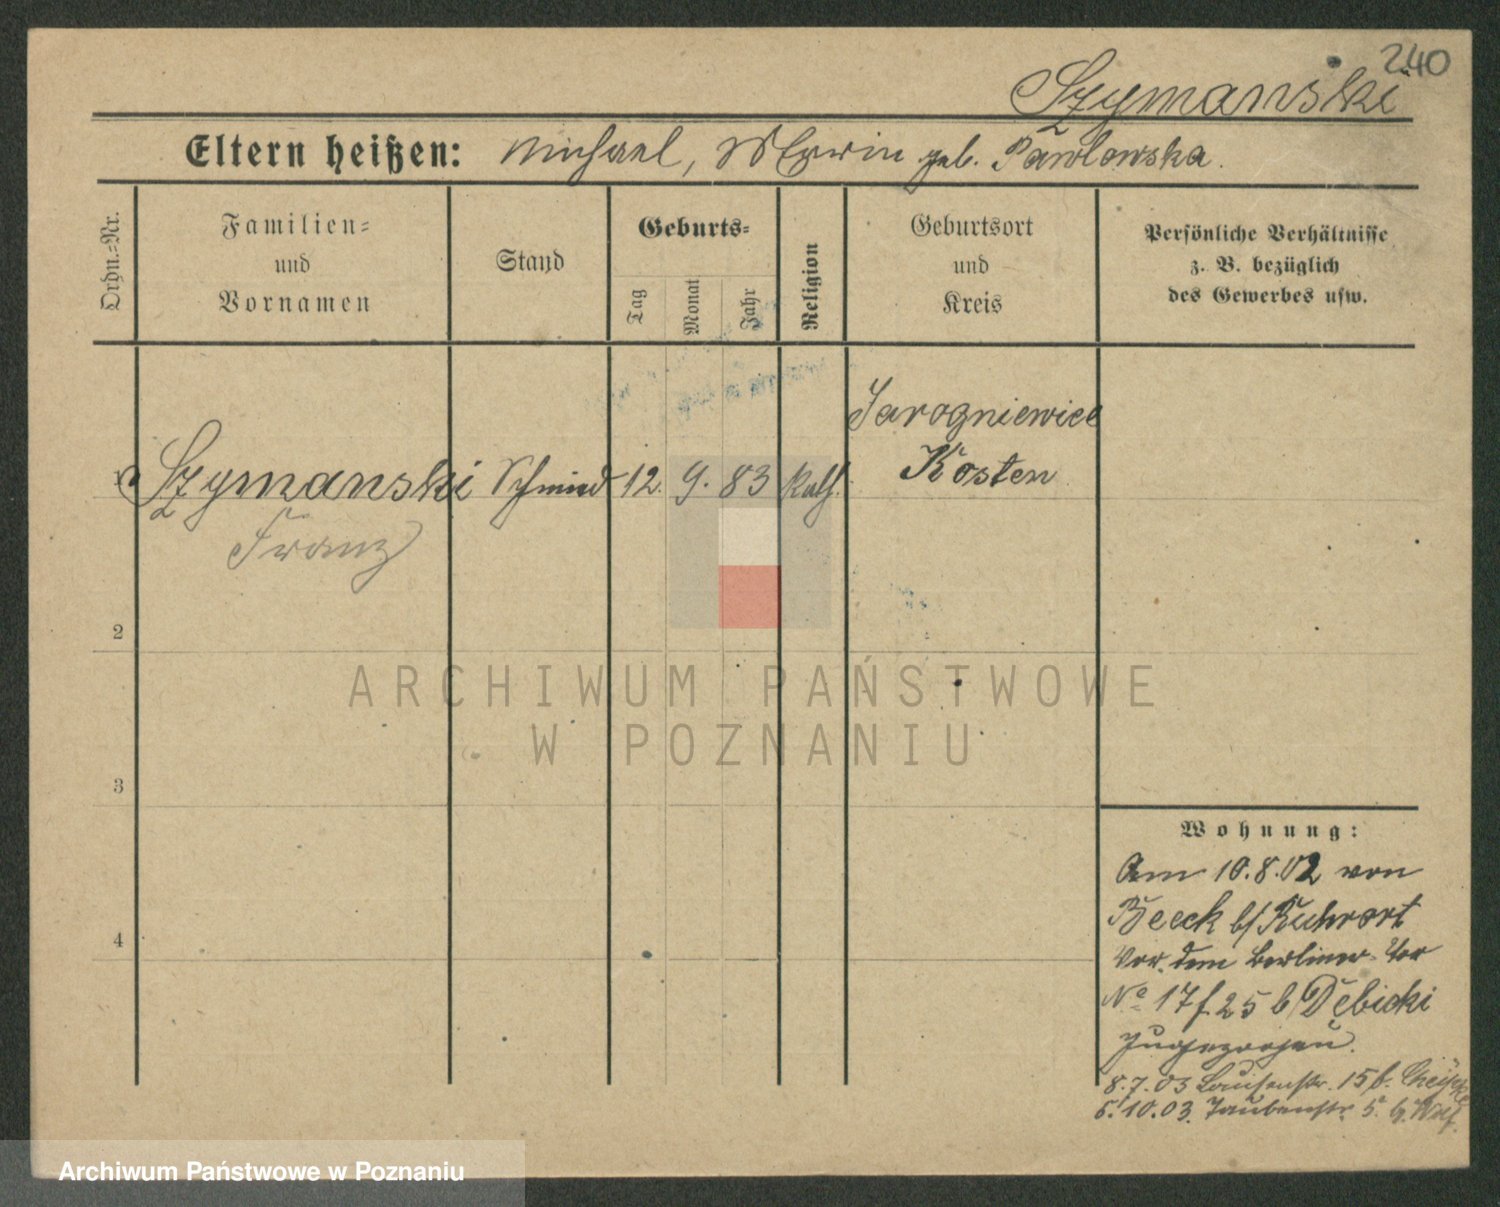 240
Szymanski
Eltern heißen: Michael, geb. Pawlowska.
Ordn.=Nr.
Familien=
und
Vornamen
Stand
Geburts=
Tag
Monat
Jahr
Religion
Geburtsort
und
Kreis
Persönliche Verhältnisse
z. B. bezüglich
des Gewerbes usw.
Jarogniewice
1 Szymanski Schmied 12. 9. 83 kath. Kosten
Franz
2
3
4
Wohnung:
Am 10.8.02 von
Beeck b/ Ruhrort
Vor dem Berliner Tor
No 17 f 25 b/ Dębicki
zugezogen.
8.7.03 Louisenstr. 15 b.
6.10.03. Taubenstr. 5. b.
ARCHIWUM PAŃSTWOWE
W POZNANIU
Archiwum Państwowe w Poznaniu